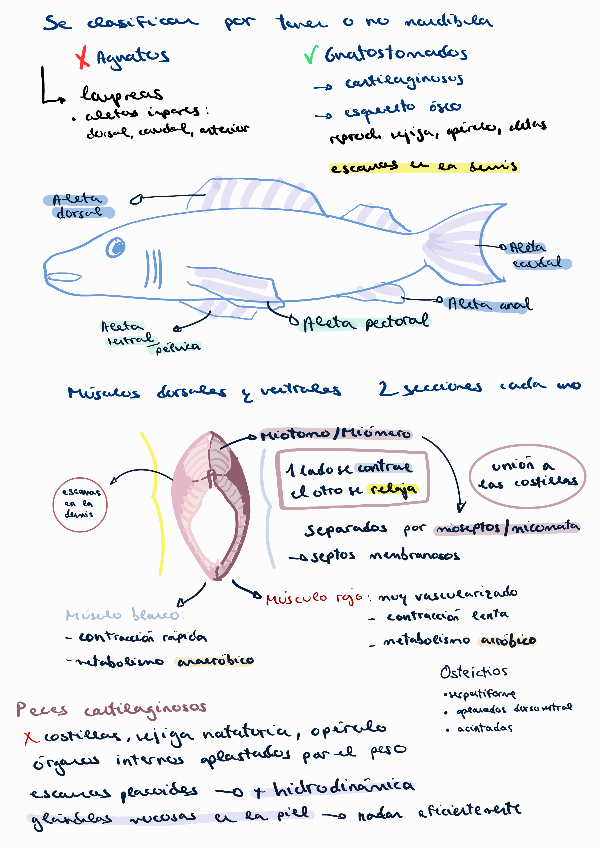 Se clasifican por tener o no mandíbula
X Agnatos
✓ Gnatostomados
→ lampreas
• aletas impares:
dorsal, caudal, anterior
→ cartilaginosos
→ esqueleto óseo
vejiga, opérculo, aletas
escamas en la dermis
Aleta dorsal
Aleta caudal
Aleta anal
Aleta pectoral
Aleta ventral pélvica
Músculos dorsales y ventrales 2 secciones cada uno
Miotomo/Miómero
1 lado se contrae
el otro se relaja
unión a
las costillas
escamas
en la
dermis
separados por mioseptos/miconata
→ septos membranosos
Músculo blanco:
- contracción rápida
- metabolismo anaeróbico
Músculo rojo: muy vascularizado
- contracción lenta
- metabolismo aeróbico
Osteictios
• serpentiforme
• aplanados dorsoventral
• acintadas
Peces cartilaginosos
X costillas, vejiga natatoria, opérculo
órganos internos aplastados por el peso
escamas placoides → + hidrodinámica
glándulas mucosas en la piel → nadar eficientemente